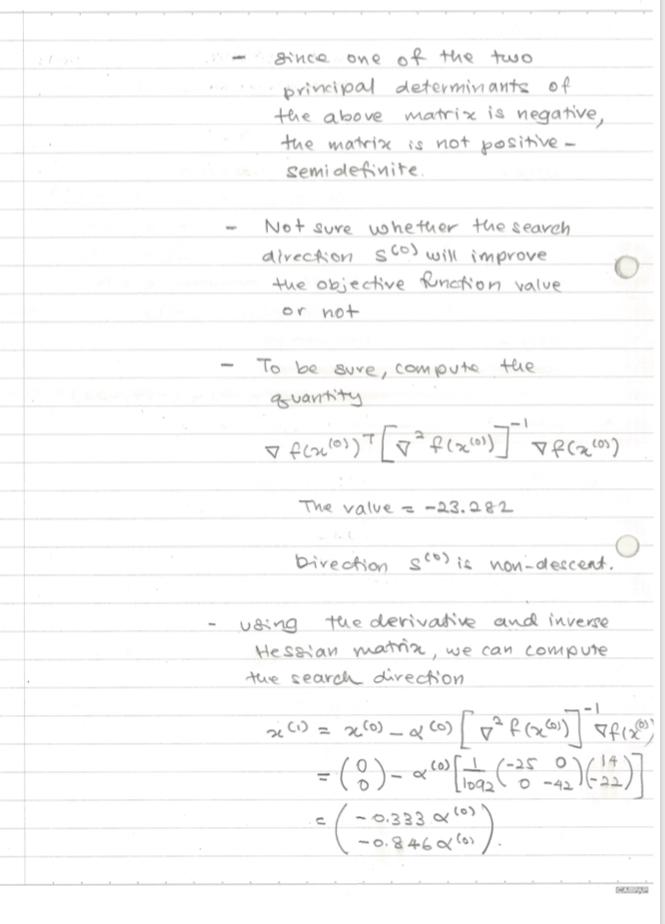 - since one of the two
principal determinants of
the above matrix is negative,
the matrix is not positive-
semidefinite.
- Not sure whether the search
direction s⁽⁰⁾ will improve
the objective function value
or not
- To be sure, compute the
quantity
∇ f(x⁽⁰⁾)ᵀ [∇² f(x⁽⁰⁾)]⁻¹ ∇f(x⁽⁰⁾)
The value = -23.282
Direction s⁽⁰⁾ is non-descent.
- using the derivative and inverse
Hessian matrix, we can compute
the search direction
x⁽¹⁾ = x⁽⁰⁾ - α⁽⁰⁾ [∇² f(x⁽⁰⁾)]⁻¹ ∇f(x⁽⁰⁾)
= (0 0) - α⁽⁰⁾ [1/1092 (-25 0 0 -42)(14 -22)]
= (-0.333 α⁽⁰⁾ -0.846 α⁽⁰⁾).
CAMPAP